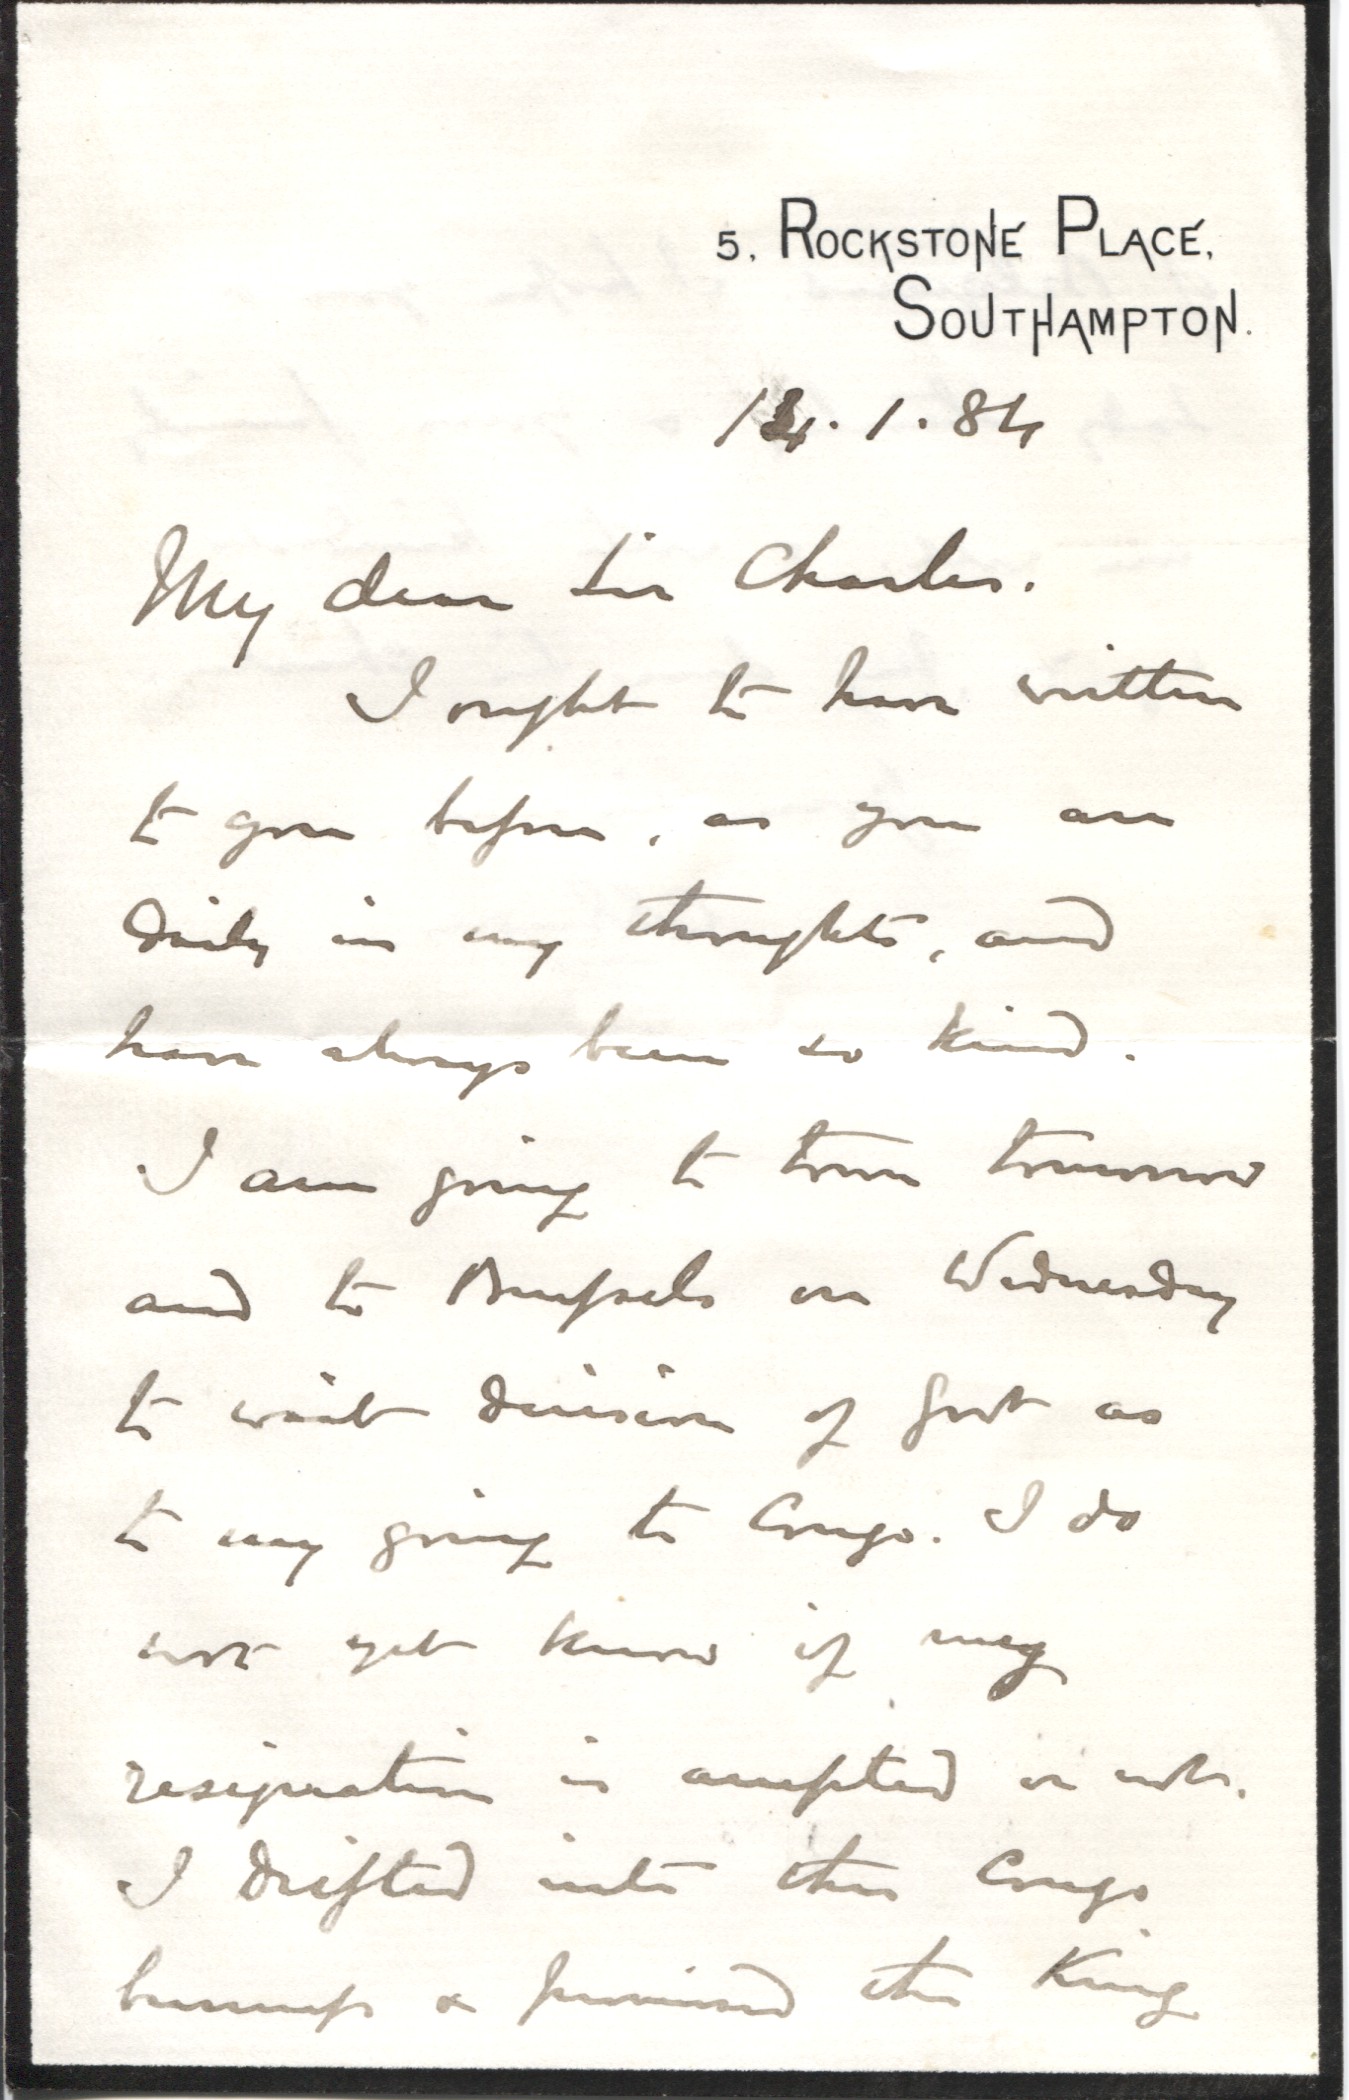 5, ROCKSTONE PLACE,
SOUTHAMPTON.
14.1.84
My dear Sir Charles.
I ought to have written
to you before, as you are
daily in my thoughts, and
have always been so kind.
I am going to town tomorrow
and to Brussels on Wednesday
to wait decision of Govt as
to my going to Congo. I do
not yet know if my
resignation is accepted or not.
I drifted into this Congo
business & promised the King